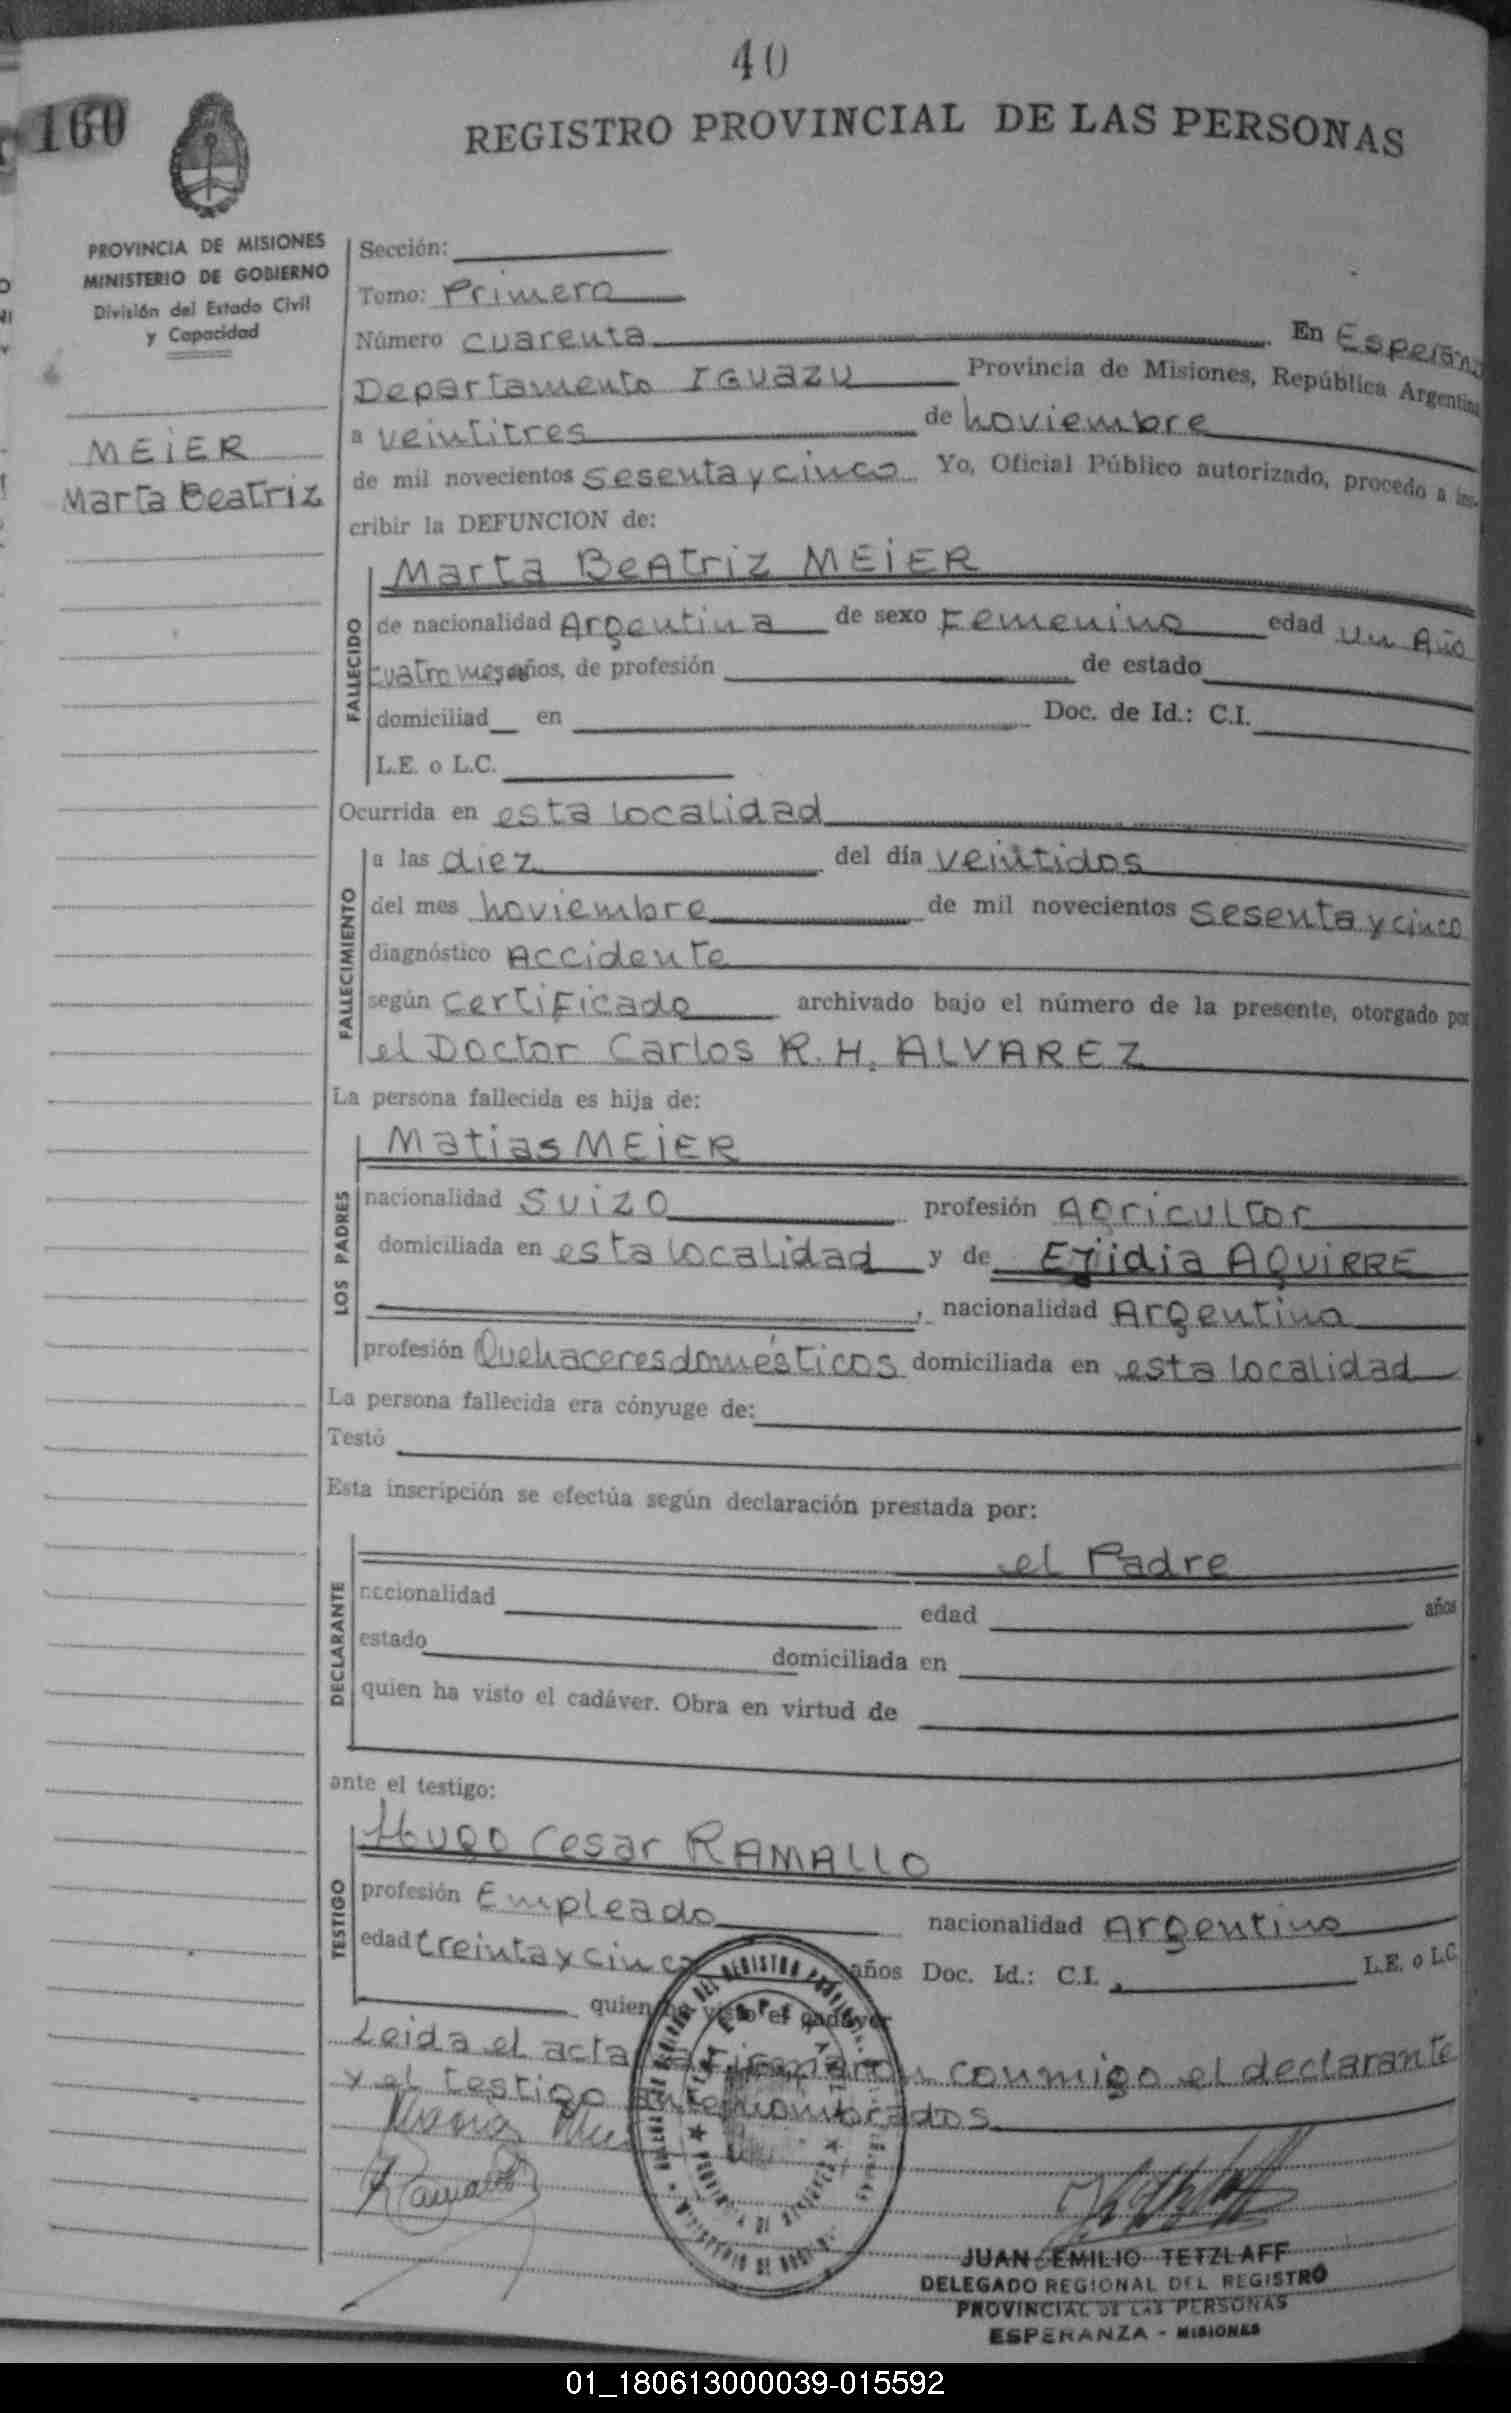 40
160
REGISTRO PROVINCIAL DE LAS PERSONAS
PROVINCIA DE MISIONES
MINISTERIO DE GOBIERNO
División del Estado Civil
y Capacidad
MEIER
Marta Beatriz
Sección:
Tomo: Primero
Número cuarenta. En Esperanz
Departamento IGUAZU Provincia de Misiones, República Argentina
a veintitres de noviembre
de mil novecientos sesenta y cinco Yo, Oficial Público autorizado, procedo a ins-
cribir la DEFUNCION de:
Marta Beatriz MEIER
FALLECIDO
de nacionalidad Argentina de sexo Femenino edad un Año
cuatro meses años, de profesión de estado
domiciliad en Doc. de Id.: C.I.
L.E. o L.C.
Ocurrida en esta localidad
FALLECIMIENTO
a las diez del día veintidos
del mes noviembre de mil novecientos sesenta y cinco
diagnóstico Accidente
según certificado archivado bajo el número de la presente, otorgado por
el Doctor Carlos R. H. ALVAREZ
La persona fallecida es hija de:
LOS PADRES
Matias MEIER
nacionalidad suizo profesión Agricultor
domiciliada en esta localidad y de Ejidia AGUIRRE
, nacionalidad Argentina
profesión Quehaceres domésticos domiciliada en esta localidad
La persona fallecida era cónyuge de:
Testó
Esta inscripción se efectúa según declaración prestada por:
DECLARANTE
el Padre
nacionalidad edad años
estado domiciliada en
quien ha visto el cadáver. Obra en virtud de
ante el testigo:
TESTIGO
Hugo Cesar RAMALLO
profesión Empleado nacionalidad Argentino
edad treinta y cinco años Doc. Id.: C.I. , L.E. o L.C.
quien ha visto el cadáver
Leida el acta la firmaron conmigo el declarante
y el testigo antenombrados
Ramallo
JUAN EMILIO TETZLAFF
DELEGADO REGIONAL DEL REGISTRO
PROVINCIAL DE LAS PERSONAS
ESPERANZA - MISIONES
01_180613000039-015592